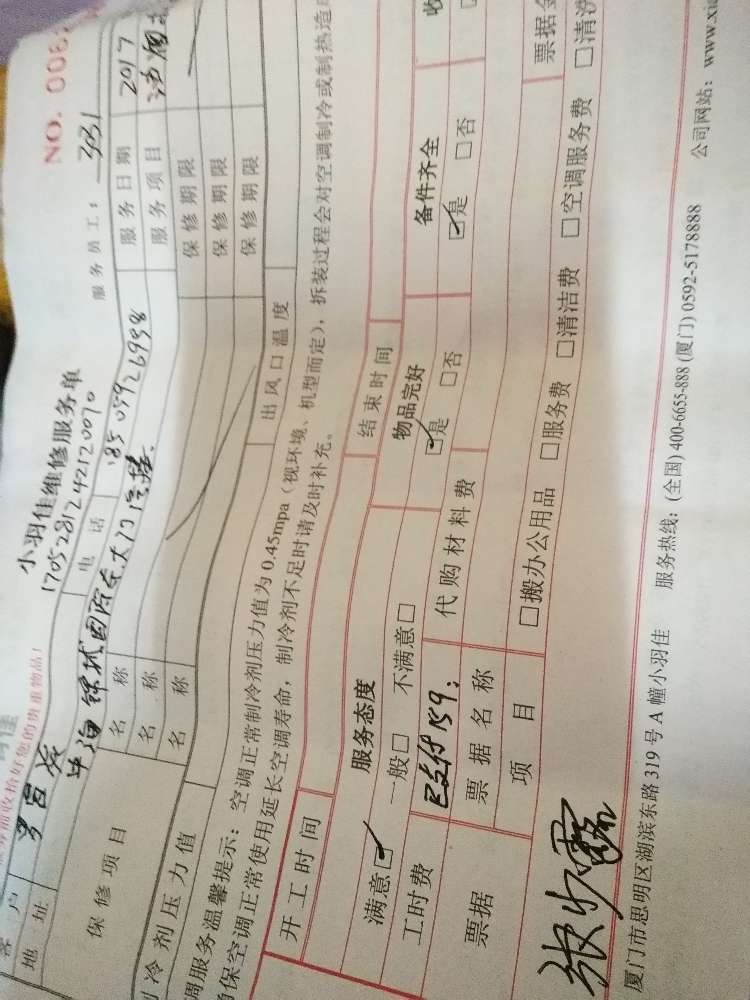 收拾好您的贵重物品!
小羽佳维修服务单
NO. 006
1705281242120070
服务员工: 331
客户
电话 18505926998
服务日期 2017
地址 中海锦城国际
服务项目
保修项目 名称 保修期限
名称 保修期限
名称 保修期限
制冷剂压力值 出风口温度
调服务温馨提示:空调正常制冷剂压力值为 0.45mpa(视环境、机型而定),拆装过程会对空调制冷或制热造成
确保空调正常使用延长空调寿命,制冷剂不足时请及时补充。
开工时间 结束时间
服务态度 物品完好 备件齐全 收
满意☑ 一般□ 不满意□ ☑是 □否 ☑是 □否
工时费 已支付159: 代购材料费
票据 票据名称 票据金
项目 □搬办公用品 □服务费 □清洁费 □空调服务费 □清洗
厦门市思明区湖滨东路 319 号 A 幢小羽佳 服务热线:(全国) 400-6655-888 (厦门) 0592-5178888 公司网站:www.xi